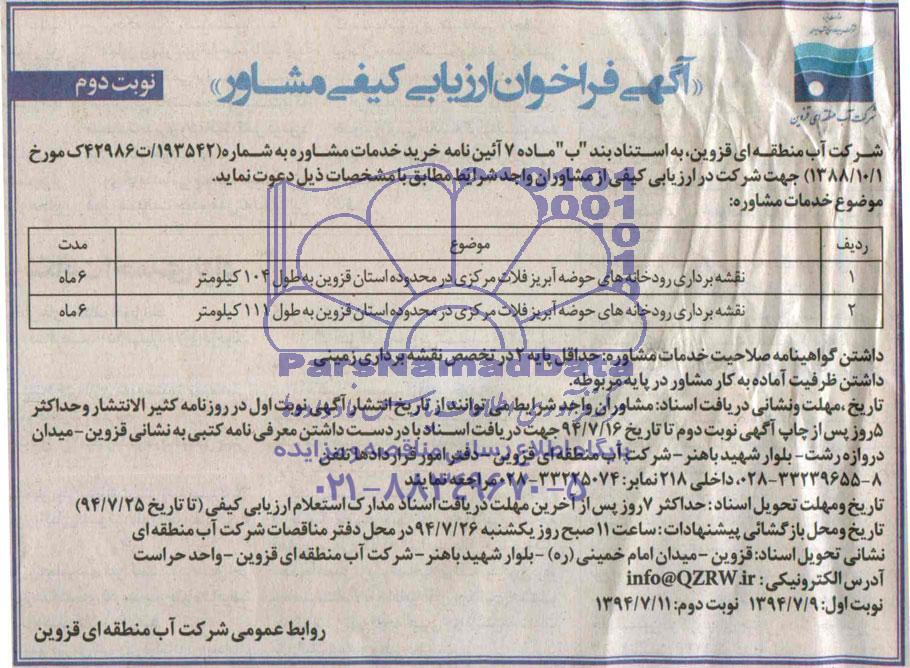 شرکت آب منطقه ای قزوین
«آگهی فراخوان ارزیابی کیفی مشاور»
نوبت دوم
شرکت آب منطقه ای قزوین، به استناد بند "ب" ماده ۷ آئین نامه خرید خدمات مشاوره به شماره(۱۹۳۵۴۲/ت۴۲۹۸۶ک مورخ
۱۳۸۸/۱۰/۱) جهت شرکت در ارزیابی کیفی از مشاوران واجد شرایط مطابق با مشخصات ذیل دعوت نماید.
موضوع خدمات مشاوره:
ردیف موضوع مدت
۱ نقشه برداری رودخانه های حوضه آبریز فلات مرکزی در محدوده استان قزوین به طول ۱۰۴ کیلومتر ۶ماه
۲ نقشه برداری رودخانه های حوضه آبریز فلات مرکزی در محدوده استان قزوین به طول ۱۱۱ کیلومتر ۶ماه
داشتن گواهینامه صلاحیت خدمات مشاوره: حداقل پایه ۲ در تخصص نقشه برداری زمینی
داشتن ظرفیت آماده به کار مشاور در پایه مربوطه.
تاریخ، مهلت ونشانی دریافت اسناد: مشاوران واجد شرایط می توانند از تاریخ انتشار آگهی نوبت اول در روزنامه کثیر الانتشار وحداکثر
۵روز پس از چاپ آگهی نوبت دوم تا تاریخ ۹۴/۷/۱۶ جهت دریافت اسناد با در دست داشتن معرفی نامه کتبی به نشانی قزوین-میدان
دروازه رشت- بلوار شهید باهنر-شرکت آب منطقه ای قزوین -دفتر امور قراردادها تلفن
۸-۳۳۲۳۹۶۵۵-۰۲۸، داخلی ۲۱۸ نمابر: ۳۳۲۲۵۰۷۴-۰۲۸ مراجعه نمایند
تاریخ ومهلت تحویل اسناد: حداکثر ۷روز پس از آخرین مهلت دریافت اسناد مدارک استعلام ارزیابی کیفی (تا تاریخ ۹۴/۷/۲۵)
تاریخ ومحل بازگشائی پیشنهادات: ساعت ۱۱ صبح روز یکشنبه ۹۴/۷/۲۶ در محل دفتر مناقصات شرکت آب منطقه ای
نشانی تحویل اسناد: قزوین -میدان امام خمینی (ره) -بلوار شهید باهنر -شرکت آب منطقه ای قزوین -واحد حراست
آدرس الکترونیکی: info@QZRW.ir
نوبت اول: ۱۳۹۴/۷/۹ نوبت دوم: ۱۳۹۴/۷/۱۱
روابط عمومی شرکت آب منطقه ای قزوین
ParsNamadData
پایگاه اطلاع رسانی مناقصه و مزایده
۰۲۱-۸۸۳۴۹۶۷۰-۵